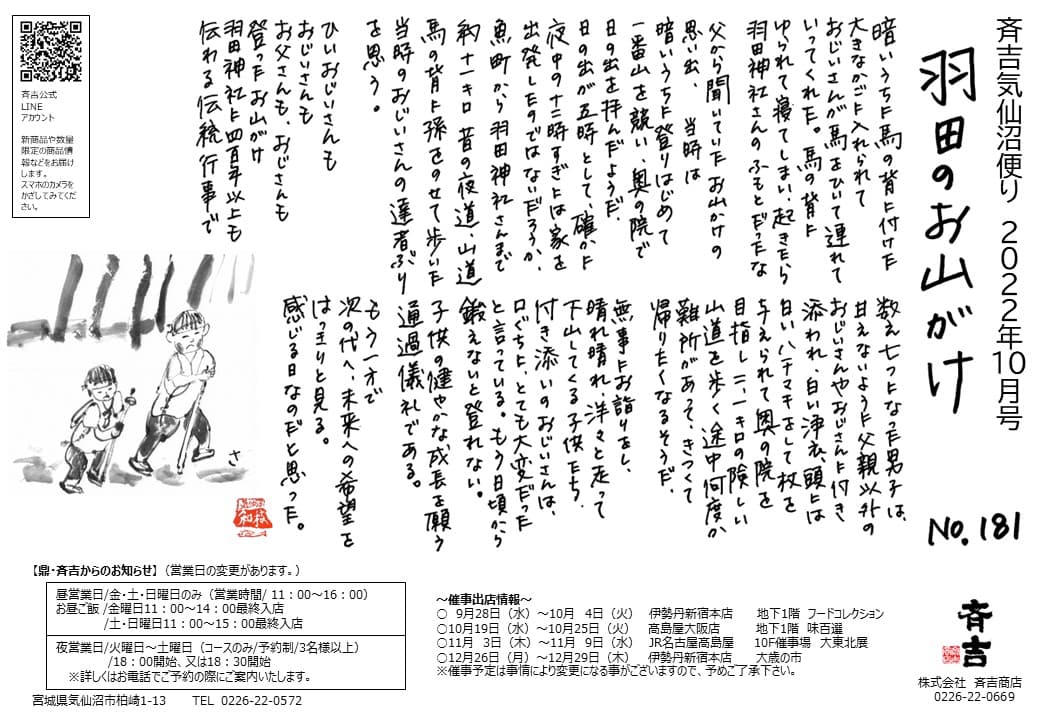 斉吉気仙沼便り 2022年10月号
羽田のお山がけ
No.181
暗いうちに馬の背に付けた
大きなかごに入れられて
おじいさんが馬をひいて連れて
いってくれた。馬の背に
ゆられて寝てしまい、起きたら
羽田神社さんのふもとだったな
父から聞いていたお山がけの
思い出、当時は
暗いうちに登りはじめて
一番山を競い、奥の院で
日の出を拝んだようだ。
日の出が五時として、確かに
夜中の十二時すぎには家を
出発したのではないだろうか、
魚町から羽田神社さんまで
約十一キロ 昔の夜道、山道
馬の背に孫をのせて歩いた
当時のおじいさんの達者ぶり
を思う。
ひいおじいさんも
おじいさんも
お父さんも、おじさんも
登ったお山がけ
羽田神社に四百年以上も
伝わる伝統行事で
数え七つになった男子は、
甘えないように父親以外の
おじいさんやおじさんに付き
添われ、白い浄衣、頭には
白いハチマキをして杖を
与えられて奥の院を
目指し二、一キロの険しい
山道を歩く途中何度か
難所があって、きつくて
帰りたくなるそうだ。
無事にお詣りをし、
晴れ晴れ洋々と走って
下山してくる子供たち、
付き添いのおじいさんは、
口ぐちに、とても大変だった
と言っている。もう日頃から
鍛えないと登れない。
子供の健やかな成長を願う
通過儀礼である。
もう一方で
次の代へ、未来への希望を
はっきりと見る。
感じる日なのだと思った。
さ
斉吉公式
LINE
アカウント
新商品や数量
限定の商品情
報などをお届け
します。
スマホのカメラを
かざしてみてくだ
さい。
【鼎・斉吉からのお知らせ】（営業日の変更があります。）
昼営業日/金・土・日曜日のみ（営業時間/ 11：00～16：00）
お昼ご飯 /金曜日11：00～14：00最終入店
/土・日曜日11：00～15：00最終入店
夜営業日/火曜日～土曜日（コースのみ/予約制/3名様以上）
/18：00開始、又は18：30開始
※詳しくはお電話でご予約の際にご案内いたします。
宮城県気仙沼市柏崎1-13 TEL 0226-22-0572
～催事出店情報～
○ 9月28日（水）～10月 4日（火） 伊勢丹新宿本店 地下1階 フードコレクション
○10月19日（水）～10月25日（火） 髙島屋大阪店 地下1階 味百選
○11月 3日（木）～11月 9日（水） JR名古屋髙島屋 10F催事場 大東北展
○12月26日（月）～12月29日（木） 伊勢丹新宿本店 大歳の市
※催事予定は事情により変更になる事がございますので、予めご了承下さい。
斉吉
株式会社 斉吉商店
0226-22-0669